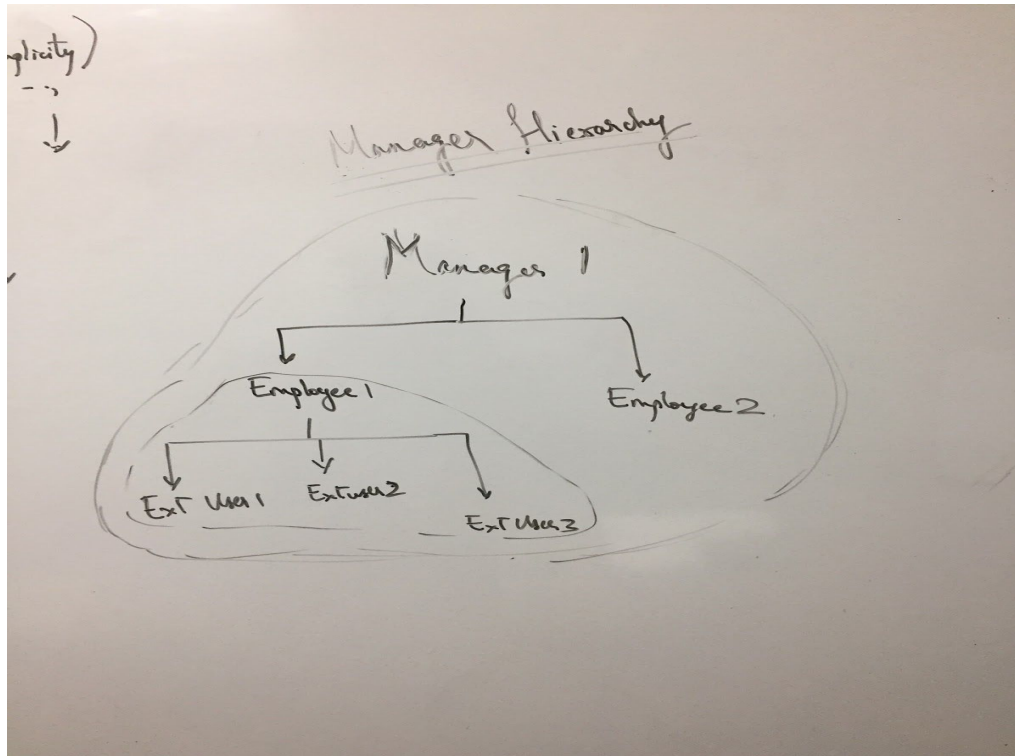 Manager Hierarchy
Manager 1
Employee 1
Employee 2
Ext User 1
Ext user 2
Ext User 3